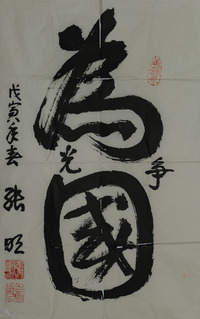 為國
争光
戊寅年春
張明